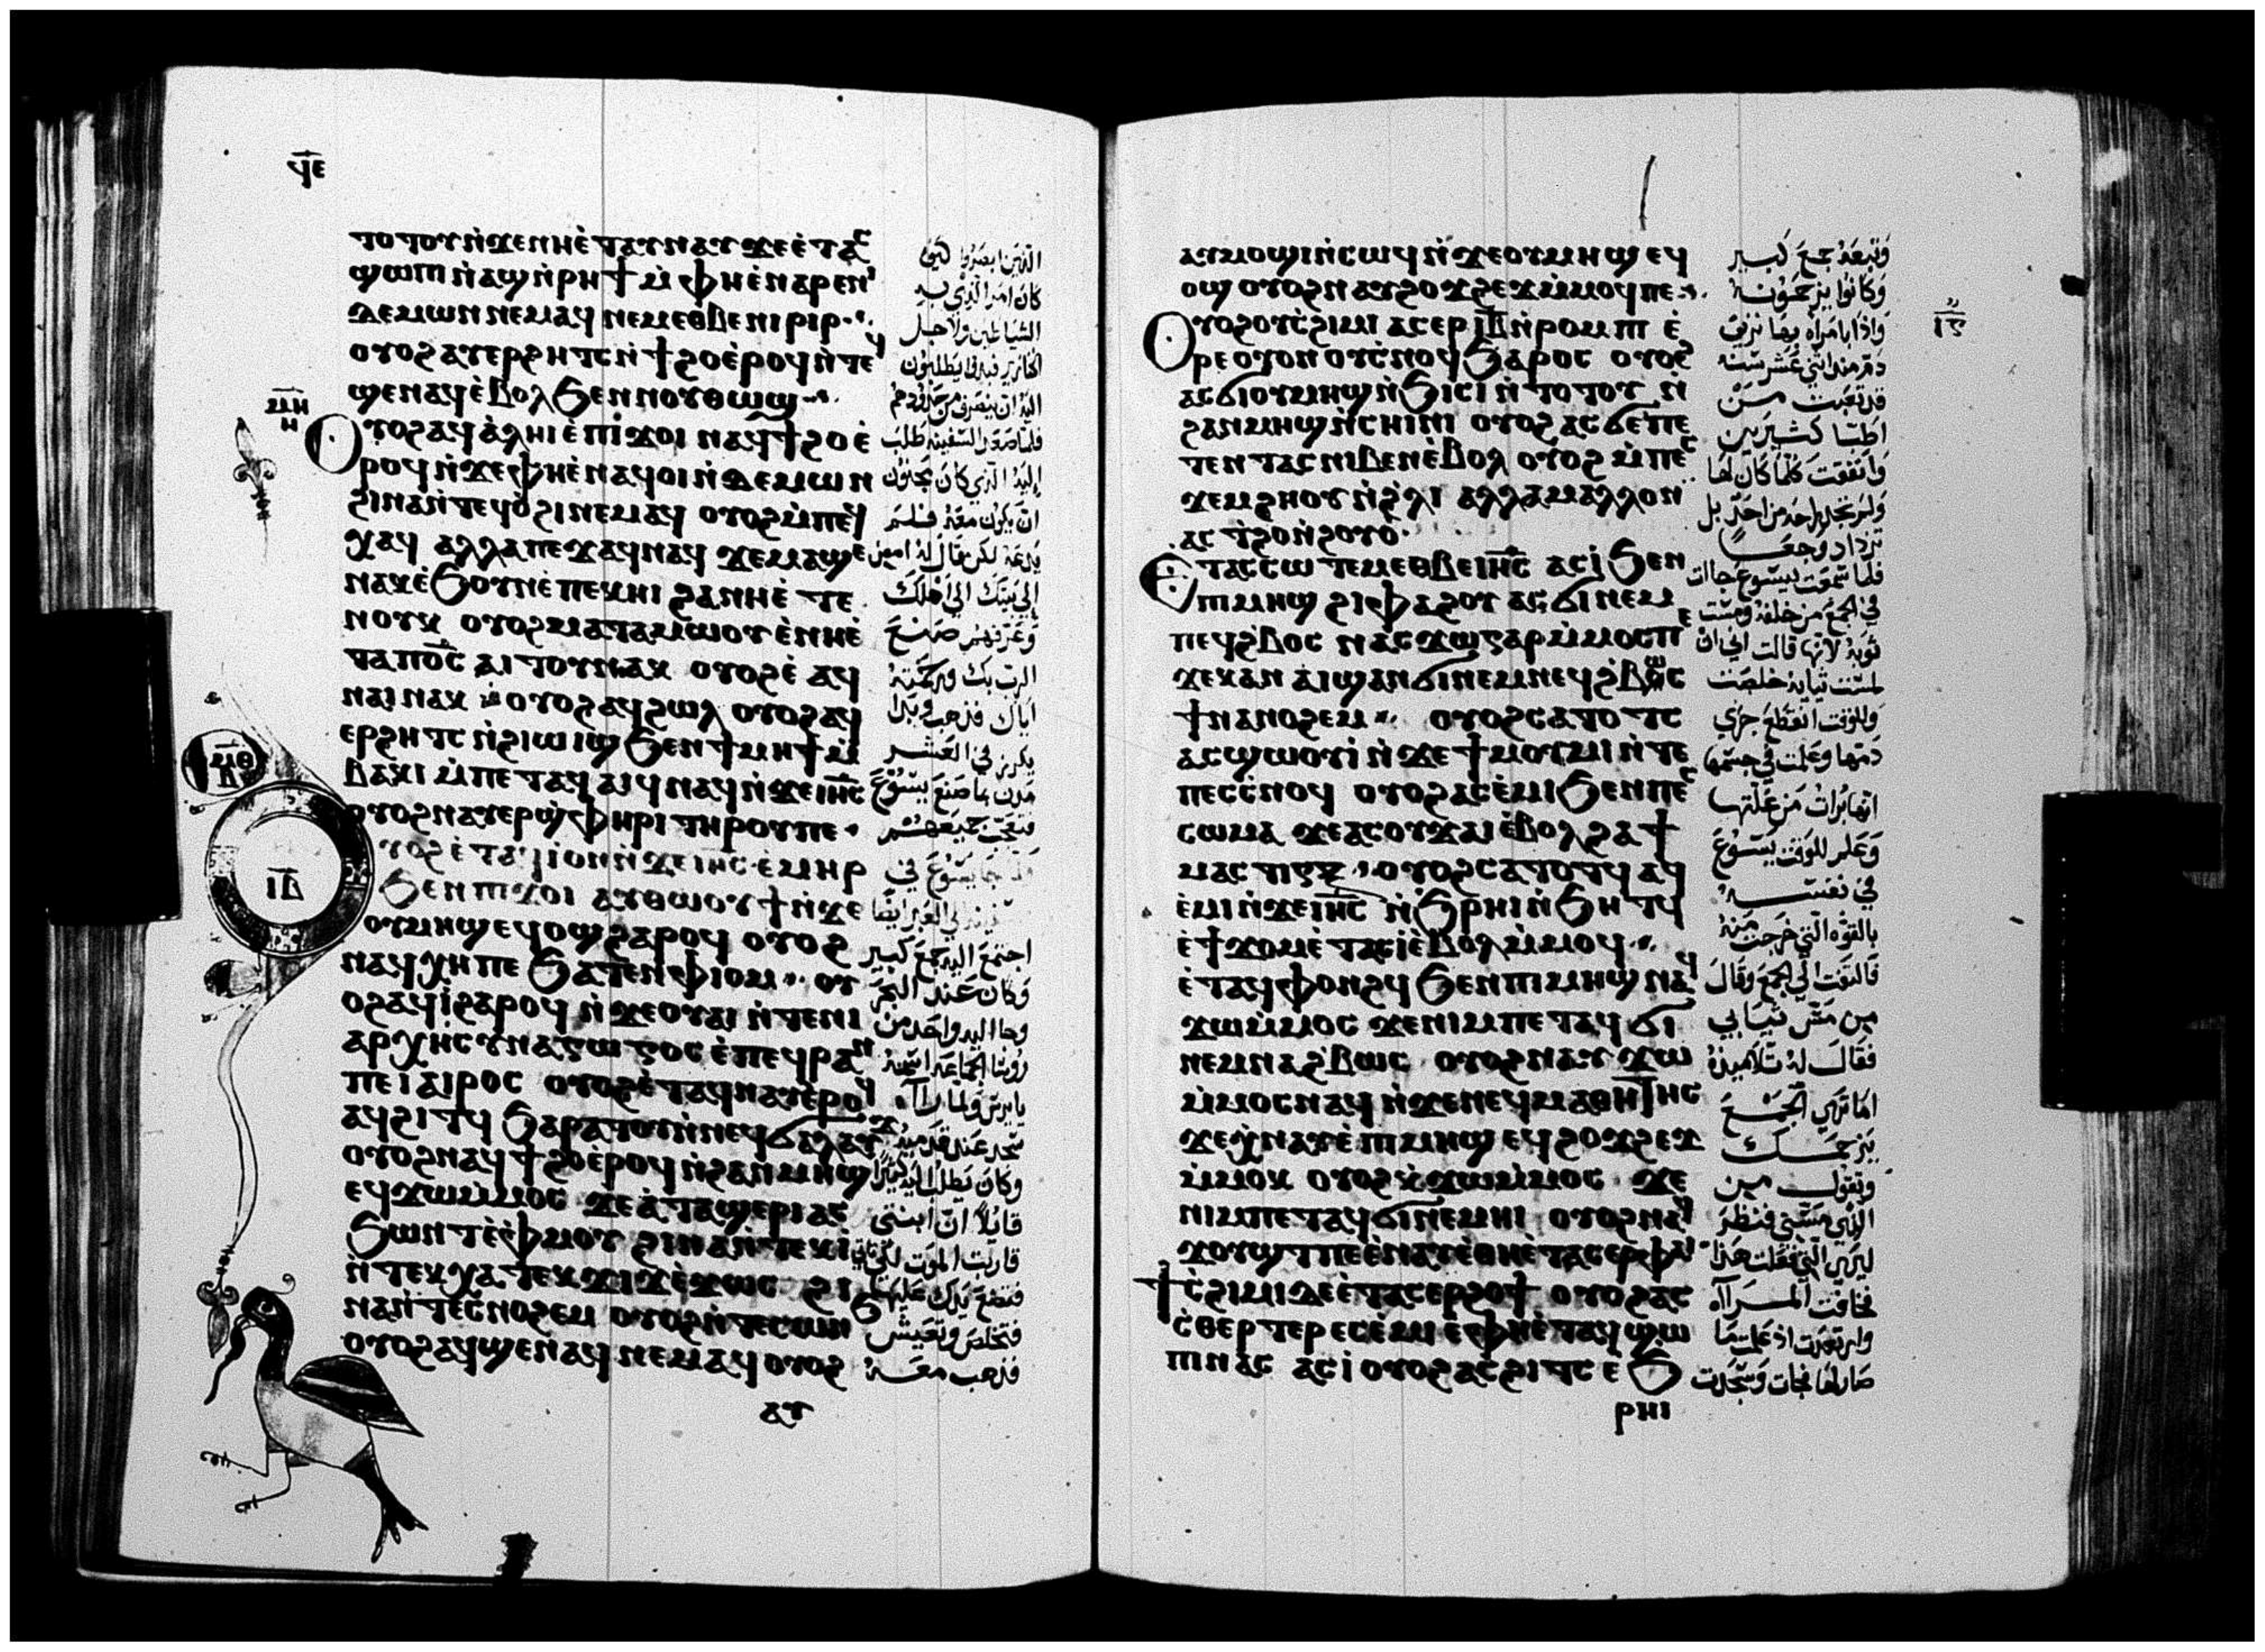 ϥⲉ
ⲧⲟⲧⲟⲩ ⲛ̀ϫⲉⲛⲏⲉ̀ⲧⲁⲩⲛⲁⲩ ϫⲉⲉ̀ⲧⲁⲥ
ϣⲱⲡⲓ ⲛ̀ⲁϣⲛ̀ⲣⲏϯ ⲙ̀ⲫⲏⲉ̀ⲛⲁⲣⲉⲛⲓ
ⲇⲉⲙⲱⲛ ⲛⲉⲙⲁϥ ⲛⲉⲙⲉⲑⲃⲉ ⲛⲓⲣⲓⲣ
ⲟⲩⲟϩ ⲁⲩⲉⲣϩⲏⲧⲥ ⲛ̀ϯϩⲟⲉ̀ⲣⲟϥ ⲛ̀ⲧⲉϥ
ϣⲉⲛⲁϥ ⲉ̀ⲃⲟⲗϧⲉⲛ ⲛⲟⲩⲑⲱϣ
ⲙⲏ
ⲏ
ⲟⲩⲟϩ ⲁϥⲁ̀ⲗⲏⲓ ⲉ̀ⲡⲓϫⲟⲓ ⲛⲁϥϯϩⲟ ⲉ̀
ⲣⲟϥ ⲛ̀ϫⲉⲫⲏⲉ̀ⲛⲁϥⲟⲓ ⲛ̀ⲇⲉⲙⲱⲛ
ϩⲓⲛⲁ ⲛ̀ⲧⲉϥⲟ̀ϩⲓ ⲛⲉⲙⲁϥ ⲟⲩⲟϩ ⲙ̀ⲡⲉϥ
ⲭⲁϥ ⲁⲗⲗⲁ ⲡⲉϫⲁϥ ⲛⲁϥ ϫⲉⲙⲁϣⲉ
ⲛⲁⲕ ⲉ̀ϧⲟⲩⲛ ⲉ̀ⲡⲉⲕⲏⲓ ϩⲁ ⲛⲏⲉ̀ⲧⲉ
ⲛⲟⲩⲕ ⲟⲩⲟϩ ⲙⲁⲧⲁⲙⲱⲟⲩ ⲉ̀ⲛⲏⲉ̀
ⲧⲁ ⲡⲟ̅ⲥ̅ ⲁⲓⲧⲟⲩ ⲛⲁⲕ ⲟⲩⲟϩ ⲉ̀ⲁϥ
ⲛⲁⲓ ⲛⲁⲕ ⲟⲩⲟϩ ⲁϥϩⲱⲗ ⲟⲩⲟϩ ⲁϥ
ⲉⲣϩⲏⲧⲥ ⲛ̀ϩⲓⲱⲓϣ ϧⲉⲛ ϯⲙⲏϯ ⲙ̀
ⲃⲁⲕⲓ ⲙ̀ⲡⲉⲧⲁϥⲁⲓϥ ⲛⲁϥ ⲛ̀ϫⲉⲓⲏ̅ⲥ̅
ⲟⲩⲟϩ ⲛⲁⲩⲉⲣϣ̀ⲫⲏⲣⲓ ⲧⲏⲣⲟⲩ ⲡⲉ
ⲙⲑ
ⲃ
ⲓⲇ
ⲟⲩⲟϩ ⲉ̀ⲧⲁϥϫⲓⲛⲓⲟⲣ ⲛ̀ϫⲉⲓⲏ̅ⲥ̅ ⲉ̀ⲙⲏⲣ
ϧⲉⲛ ⲡⲓϫⲟⲓ ⲁⲩⲑⲱⲟⲩϯ ⲛ̀ϫⲉ
ⲟⲩⲙⲏϣ ⲉϥⲟϣ ϩⲁⲣⲟϥ ⲟⲩⲟϩ
ⲛⲁϥⲭⲏ ⲡⲉ ϧⲁⲧⲉⲛ ⲫⲓⲟⲙ ⲟⲩ
ⲟϩ ⲁϥⲓ̀ ϩⲁⲣⲟϥ ⲛ̀ϫⲉⲟⲩⲁⲓ ⲛ̀ⲧⲉ ⲛⲓ
ⲁⲣⲭⲏⲥⲩⲛⲁⲅⲱⲅⲟⲥ ⲉ̀ⲡⲉϥⲣⲁⲛ
ⲡⲉ ⲓⲁⲓⲣⲟⲥ ⲟⲩⲟϩ ⲉ̀ⲧⲁϥⲛⲁⲩ ⲉ̀ⲣⲟϥ
ⲁϥϩⲓⲧϥ ϧⲁⲣⲁⲧⲟⲩ ⲛ̀ⲛⲉϥϭⲁⲗⲁⲩϫ
ⲟⲩⲟϩ ⲛⲁϥϯϩⲟ ⲉ̀ⲣⲟϥ ⲛ̀ϩⲁⲛⲙⲏϣ
ⲉϥϫⲱ ⲙ̀ⲙⲟⲥ ϫⲉⲁ̀ ⲧⲁϣⲉⲣⲓ ⲁⲥ
ϧⲱⲛⲧ ⲉ̀ⲫⲙⲟⲩ ϩⲓⲛⲁ ⲛ̀ⲧⲉⲕⲓ̀
ⲛ̀ⲧⲉⲕⲭⲁ ⲧⲉⲕϫⲓϫ ⲉ̀ϫⲱⲥ ϩⲓ
ⲛⲁ ⲛ̀ⲧⲉⲥⲛⲟϩⲉⲙ ⲟⲩⲟϩ ⲛ̀ⲧⲉⲥⲱⲛϧ
ⲟⲩⲟϩ ⲁϥϣⲉⲛⲁϥ ⲛⲉⲙⲁϥ ⲟⲩⲟϩ
ⲁⲩ
الذين ابصروا كيف
كان امر الذي به
الشياطين ولاجل
الخنازير فبدوا يطلبون
اليه ان ينصرف من حدودهم
فلما صعد السفينة طلب
اليه الذي كان مجنون
ان يكون معه فلم
يدعه لكن قال له امض
الى بيتك الى اهلك
وعرفهم صنع
الرب بك ورحمته
اياك فذهب وبدا
يكرز في العشر
مدن بما صنع يسوع
فتعجب جميعهم
اجتمع اليه جمع كبير
وكان عند البحر
وجا اليه واحد من
روسا الجماعة اسمه
يايرس ولما رآه
سجد عند قدميه
وكان يطلب اليه كثيرا
قايلا ان ابنتي
قاربت الموت
فتضع يدك عليها
فتخلص وتعيش
فذهب معه
ⲁⲩⲙⲟϣⲓ ⲛ̀ⲥⲱϥ ⲛ̀ϫⲉⲟⲩⲙⲏϣ ⲉϥ
ⲟϣ ⲟⲩⲟϩ ⲛⲁⲩϩⲟϫϩⲉϫ ⲙ̀ⲙⲟϥ ⲡⲉ
ⲟⲩⲟϩ ⲟⲩⲥ̀ϩⲓⲙⲓ ⲁⲥⲉⲣ ⲓ̅ⲃ̅ ⲛ̀ⲣⲟⲙⲡⲓ ⲉ̀
ⲣⲉ ⲟⲩⲟⲛ ⲟⲩⲥ̀ⲛⲟϥ ϧⲁⲣⲟⲥ ⲟⲩⲟϩ
ⲁⲥϭⲓ ⲟⲩⲙⲏϣ ⲛ̀ϧⲓⲥⲓ ⲛ̀ⲧⲟⲧⲟⲩ ⲛ̀
ϩⲁⲛⲙⲏϣ ⲛ̀ⲥⲏⲓⲛⲓ ⲟⲩⲟϩ ⲁⲥϭⲉ ⲡⲉ
ⲧⲉⲛⲧⲁⲥ ⲛⲓⲃⲉⲛ ⲉ̀ⲃⲟⲗ ⲟⲩⲟϩ ⲙ̀ⲡⲉⲥ
ϫⲉⲙϩⲏⲟⲩ ⲛ̀ϩ̀ⲗⲓ ⲁⲗⲗⲁ ⲙⲁⲗⲗⲟⲛ
ⲁⲥϯϩⲟ ⲛ̀ϩⲟⲩⲟ̀
ⲉ̀ⲧⲁⲥⲥⲱⲧⲉⲙ ⲉⲑⲃⲉ ⲓⲏ̅ⲥ̅ ⲁⲥⲓ̀ ϧⲉⲛ
ⲡⲓⲙⲏϣ ϩⲓⲫⲁϩⲟⲩ ⲁⲥϭⲓ ⲛⲉⲙ
ⲡⲉϥϩ̀ⲃⲟⲥ ⲛⲁⲥϫⲱ ⲅⲁⲣ ⲙ̀ⲙⲟⲥ ⲡⲉ
ϫⲉ ⲕⲁⲛ ⲁⲓϣⲁⲛϭⲓ ⲛⲉⲙ ⲛⲉϥϩ̀ⲃⲱⲥ
ϯⲛⲁⲛⲟϩⲉⲙ ⲟⲩⲟϩ ⲥⲁⲧⲟⲧⲥ
ⲁⲥϣⲱⲟⲩⲓ̀ ⲛ̀ϫⲉϯⲙⲟⲩⲙⲓ ⲛ̀ⲧⲉ
ⲡⲉⲥⲥ̀ⲛⲟϥ ⲟⲩⲟϩ ⲁⲥⲉ̀ⲙⲓ ϧⲉⲛ ⲡⲉⲥ
ⲥⲱⲙⲁ ϫⲉ ⲁⲥⲟⲩϫⲁⲓ ⲉ̀ⲃⲟⲗϩⲁ ϯ
ⲙⲁⲥⲧⲓⲅⲝ ⲟⲩⲟϩ ⲥⲁⲧⲟⲧϥ ⲁϥ
ⲉ̀ⲙⲓ ⲛ̀ϫⲉⲓⲏ̅ⲥ̅ ⲛ̀ϧ̀ⲣⲏⲓ ⲛ̀ϧⲏⲧϥ
ⲉ̀ϯϫⲟⲙ ⲉ̀ⲧⲁⲥⲓ̀ ⲉ̀ⲃⲟⲗ ⲙ̀ⲙⲟϥ
ⲉ̀ⲧⲁϥⲫⲟⲛϩϥ ϧⲉⲛ ⲡⲓⲙⲏϣ ⲛⲁϥ
ϫⲱ ⲙ̀ⲙⲟⲥ ϫⲉ ⲛⲓⲙ ⲡⲉⲧⲁϥϭⲓ
ⲛⲉⲙ ⲛⲁϩ̀ⲃⲱⲥ ⲟⲩⲟϩ ⲛⲁⲩϫⲱ
ⲙ̀ⲙⲟⲥ ⲛⲁϥ ⲛ̀ϫⲉⲛⲉϥⲙⲁⲑⲏⲧⲏⲥ
ϫⲉ ⲭ̀ⲛⲁⲩ ⲉ̀ⲡⲓⲙⲏϣ ⲉϥϩⲟϫϩⲉϫ
ⲙ̀ⲙⲟⲕ ⲟⲩⲟϩ ⲕ̀ϫⲱ ⲙ̀ⲙⲟⲥ ϫⲉ
ⲛⲓⲙ ⲡⲉⲧⲁϥϭⲓ ⲛⲉⲙⲏⲓ ⲟⲩⲟϩ ⲛⲁϥ
ϫⲟⲩϣⲧ ⲡⲉ ⲉ̀ⲛⲁⲩ ⲉ̀ⲑⲏⲉ̀ⲧⲁⲥⲉⲣ ⲫⲁⲓ
ϯⲥ̀ϩⲓⲙⲓ ⲇⲉ ⲉ̀ⲧⲁⲥⲉⲣϩⲟϯ ⲟⲩⲟϩ ⲁⲥ
ⲥ̀ⲑⲉⲣⲧⲉⲣ ⲉⲥⲉ̀ⲙⲓ ⲉ̀ⲫⲏⲉ̀ⲧⲁϥϣⲱ
ⲡⲓ ⲛⲁⲥ ⲁⲥⲓ̀ ⲟⲩⲟϩ ⲁⲥϩⲓⲧⲥ ⲉ̀ϧ
ⲣⲏⲓ
وتبعه جمع كبير
وكانوا يزحمونه
واذا بامراه بها نزيف
دم منذ اثني عشر سنه
قد تعبت من
اطبا كثيرين
وانفقت كلما كان لها
ولم تجد راحه من احد بل
تزداد وجعا
فلما سمعت بيسوع جاات
في الجمع من خلفه ومست
ثوبه لانها قالت اني ان
لمست ثيابه خلصت
وللوقت انقطع جري
دمها وعلمت في جسمها
انها برات من علتها
وعلم للوقت يسوع
في نفسه
بالقوه التي خرجت منه
فالتفت الى الجمع وقال
من مس ثيابي
فقال له تلاميذه
اما ترى الجمع
يزحمك
وتقول من
الذي مسني فنظر
ليرى التي فعلت هذا
فخافت المراه
وارتعدت اذ علمت ما
صار لها فجات وسجدت